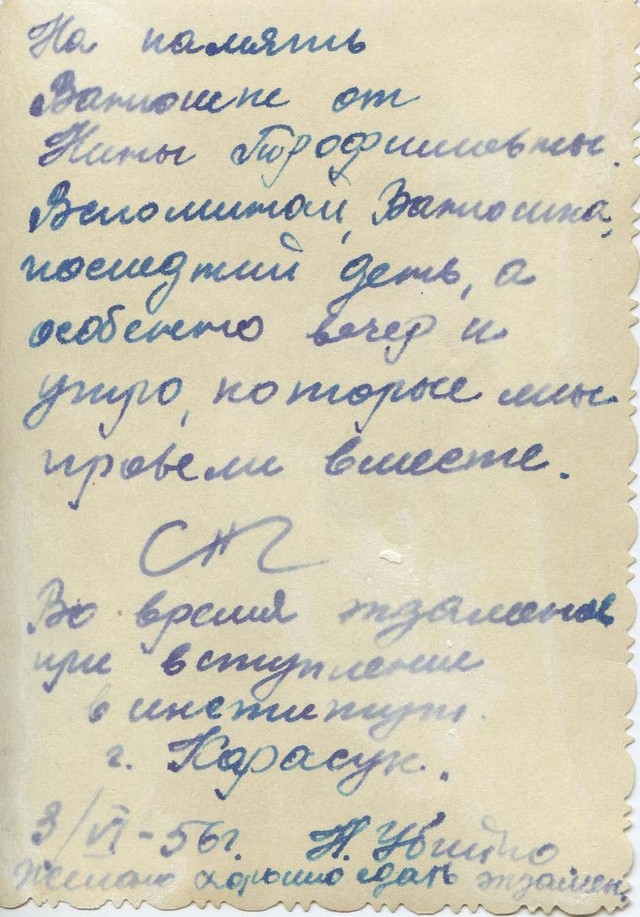 На память
Ванюшке от
Нины Профимовны.
Вспоминай, Ванюшка,
последний день, а
особенно вечер и
утро, которые мы
провели вместе.
Во время экзаменов
при вступление
в институт.
г. Карасук.
3/VI-56г. Н.
Желаю хорошо сдать экзамен.